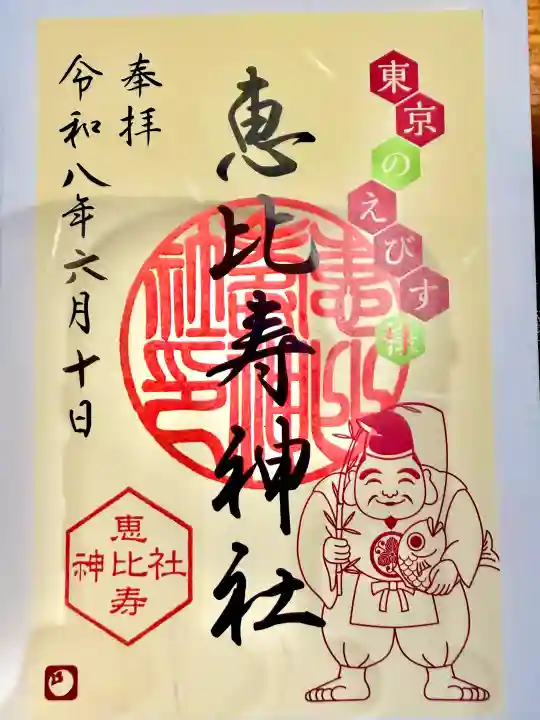 東京のえびす様
恵比寿神社
奉拝
令和八年六月十日
恵比寿神社
恵比寿
神社